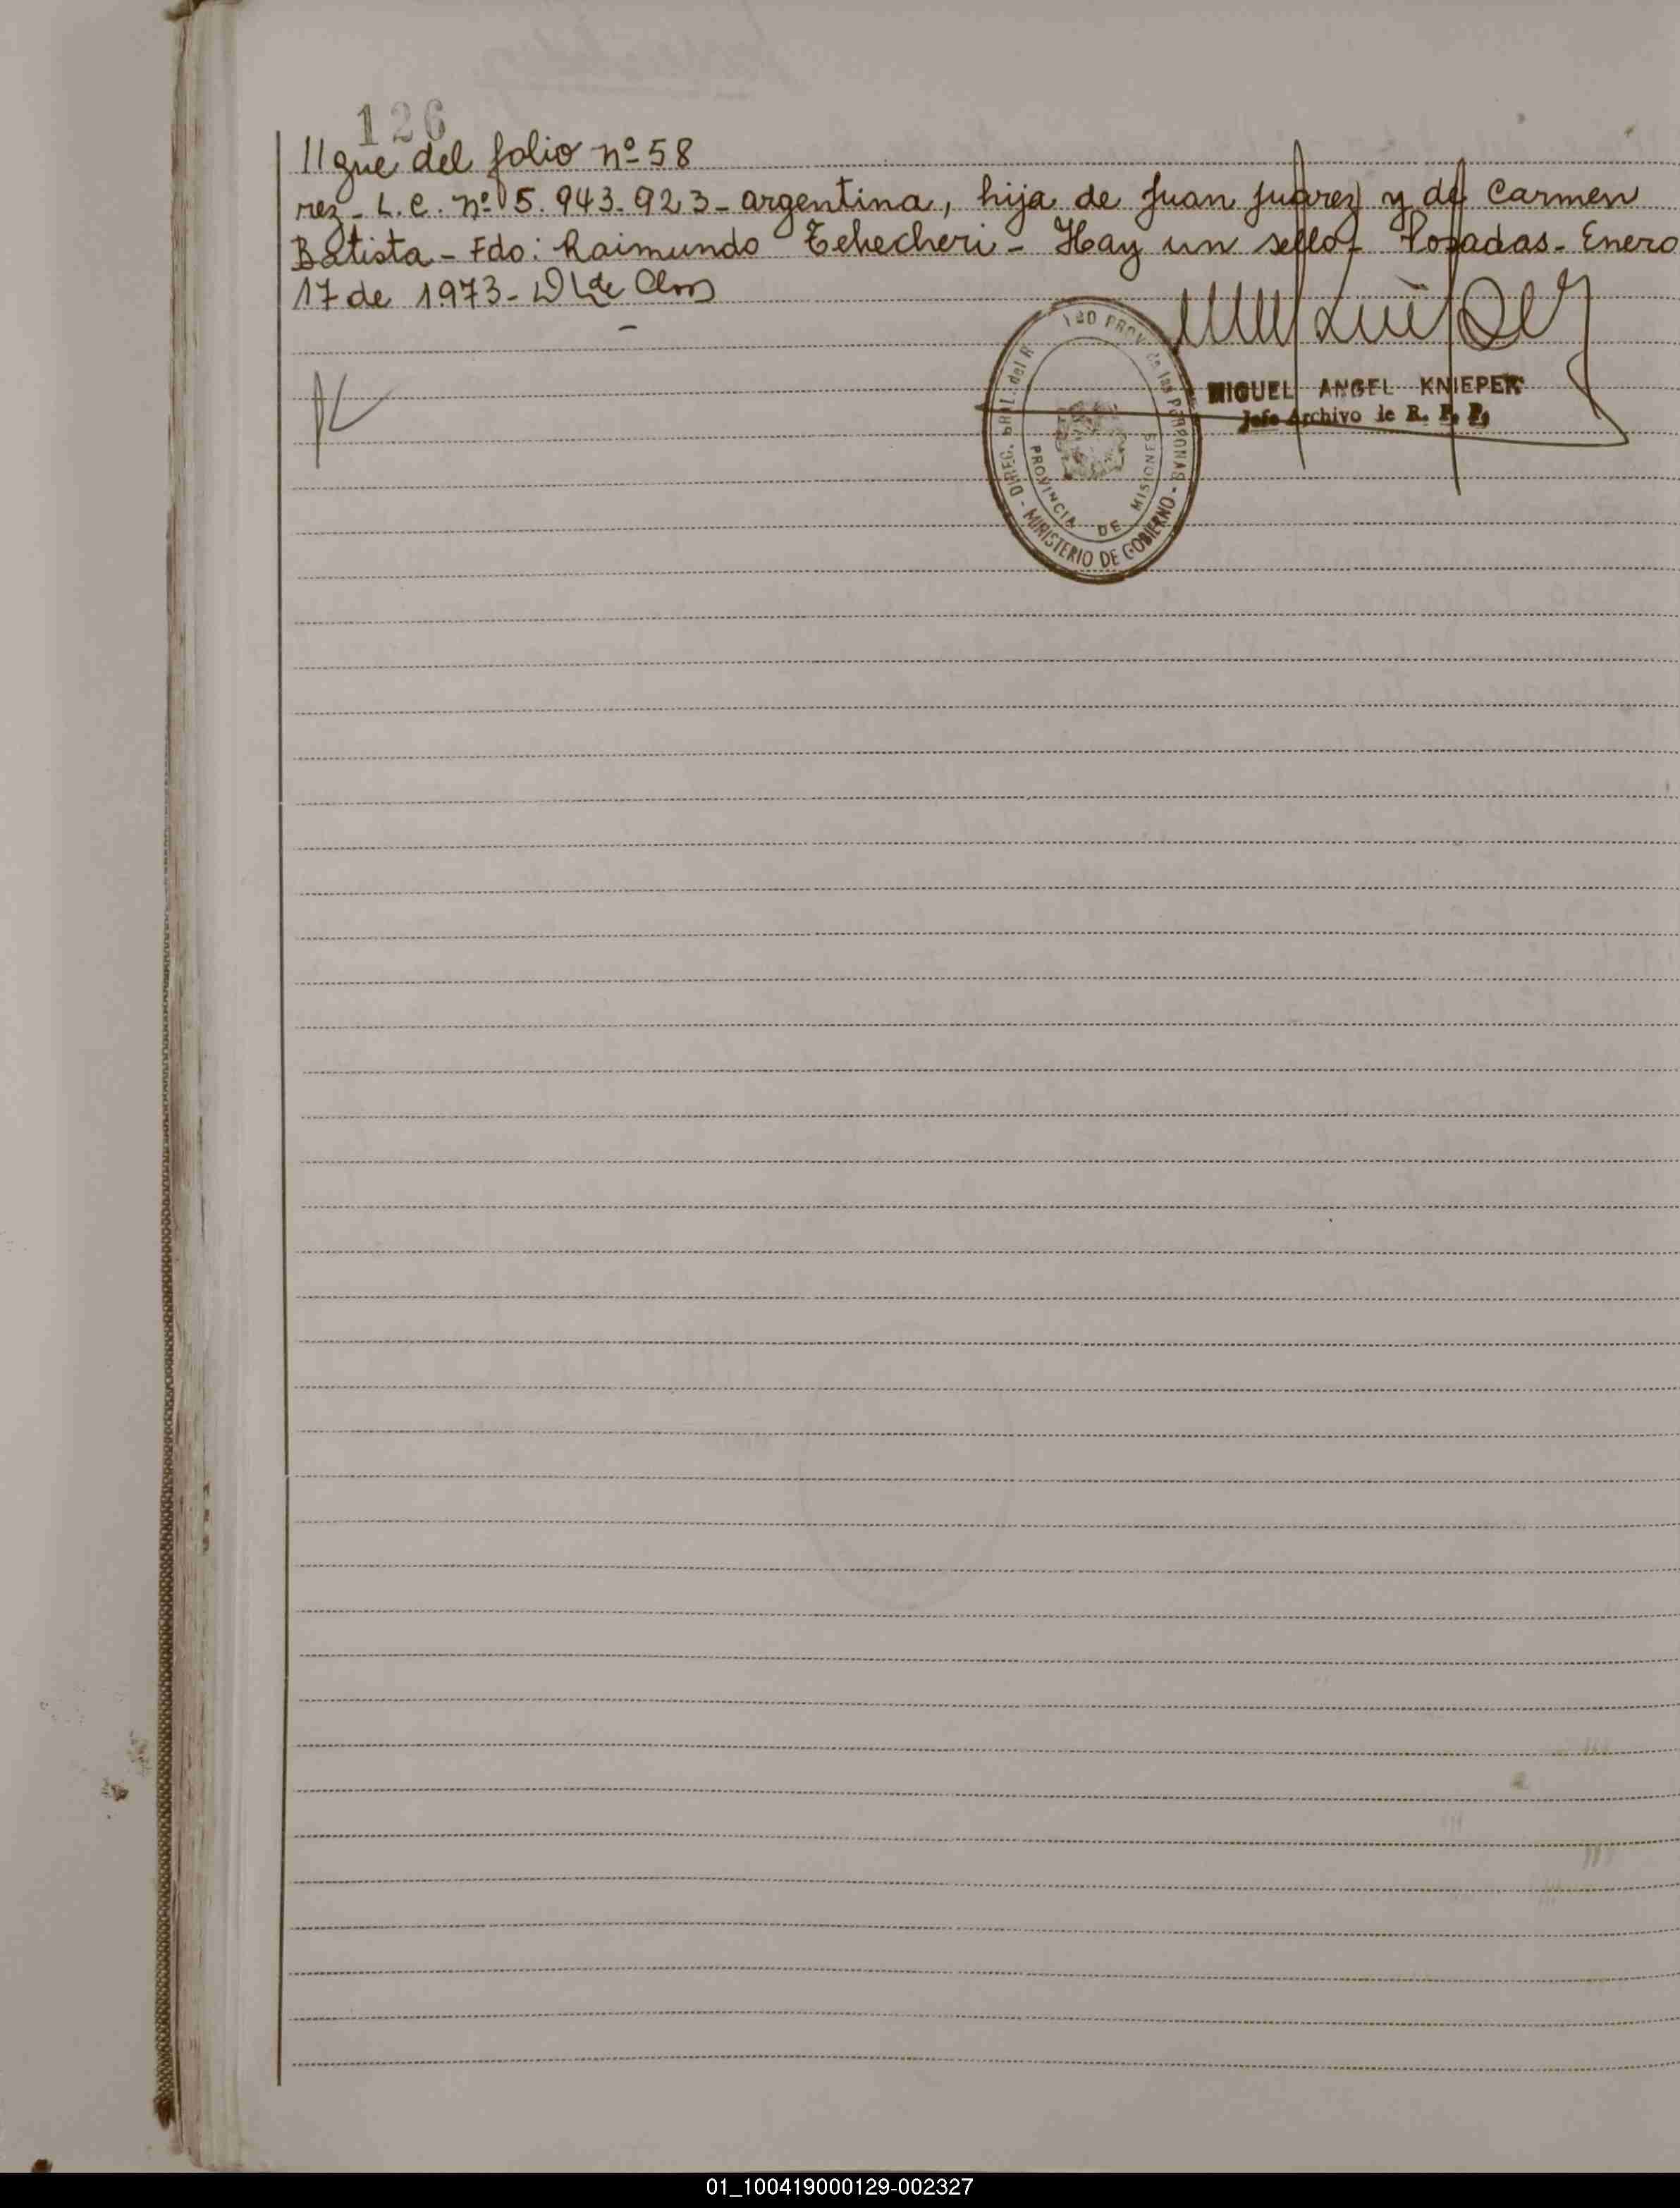 126
//gue del folio nº 58
rez - L.C. nº 5.943.923 - argentina, hija de Juan Juarez y de Carmen
Batista - Fdo: Raimundo Tehecheri - Hay un sello - Posadas - Enero
17 de 1973 -
MIGUEL ANGEL KNIEPER
Jefe Archivo de R. P. P.
DIREC. GRAL. del R PROV. de las PERSONAS
- MINISTERIO DE GOBIERNO -
PROVINCIA DE MISIONES
01_100419000129-002327